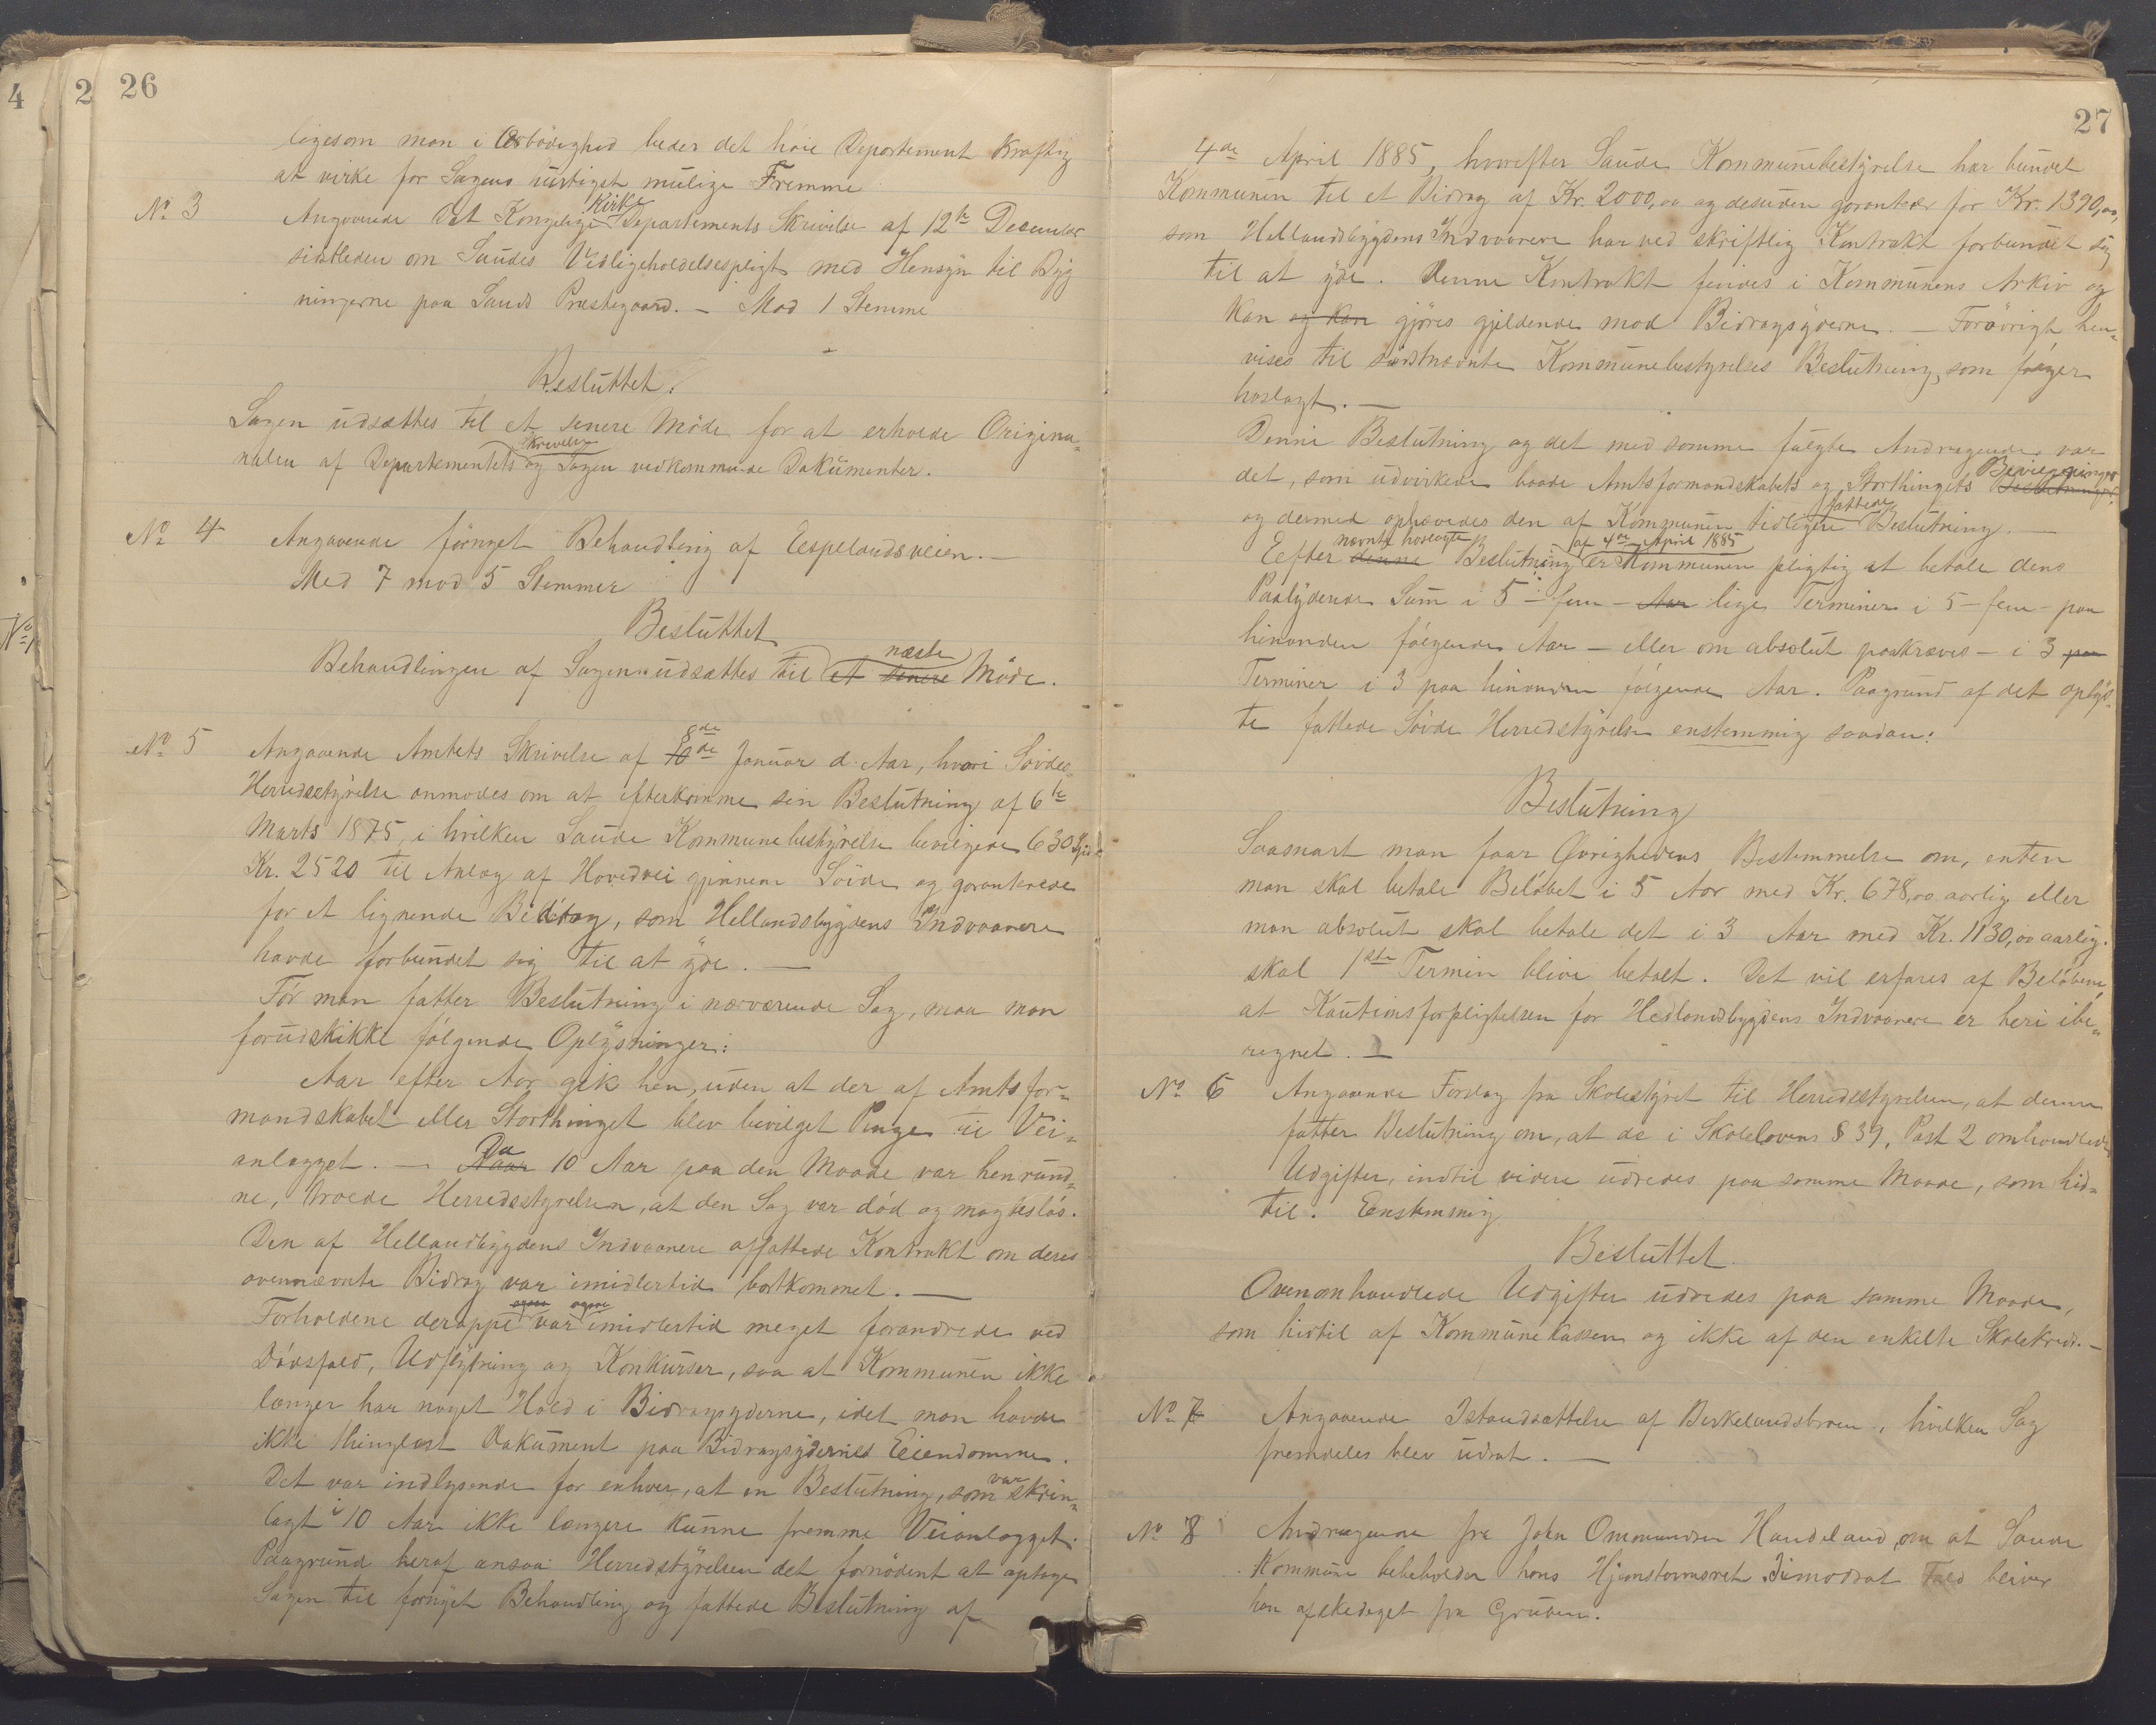 26
ligesom man i Ærbødighed beder det høie Departement kraftig
at virke for Sagens hurtigst mulige Fremme
No 3 Angaaende Det Kongelige Kirke Departements Skrivelse af 12te December
sidstleden om Saudes Vedligeholdelsespligt med Hensyn til Byg
ningerne paa Sauds Præstegaard. – Mod 1 Stemme
Besluttet.
Sagen udsættes til et senere Møde for at erholde Origina-
nalen af Departementets Skrivelse og Sagen vedkommende Dokumenter.
No 4 Angaaende fornyet Behandling af Espelandsveien. –
Med 7 mod 5 Stemmer
Besluttet
Behandlingen af Sagen udsættes til et senere næste Møde.
No 5 Angaaende Amtets Skrivelse af 10de 8de Januar d. Aar, hvori Søvde
Herredsstyrelse anmodes om at efterkomme sin Beslutning af 6te
Marts 1875, i hvilken Saude Kommunebestyrelse bevilgede 630 Spd
Kr. 2520 til Anlæg af Hovedvei gjennem Søvde og garanterede
for et lignende Bidrag, som Hellandsbygdens Indvaanere
havde forbundet sig til at yde. –
Før man fatter Beslutning i nærværende Sag, maa man
forudskikke følgende Oplysninger:
Aar efter Aar gik hen, uden at der af Amtsfor-
mandskabet eller Storthinget blev bevilget Penge til Vei-
anlægget. – Naar Da 10 Aar paa den Maade var henrund-
ne, troede Herredsstyrelsen, at den Sag var død og magtesløs.
Den af Hellandsbygdens Indvaanere affattede Kontrakt om deres
ovennævnte Bidrag var imidlertid bortkommet. –
Forholdene deroppe ogsaa var ogsaa imidlertid meget forandrede ved
Dødsfald, Udflytning og Konkurser, saa at Kommunen ikke
længer har noget Hold i Bidragsyderne, idet man havde
ikke thinglæst Dokument paa Bidragsydernes Eiendomme.
Det var indlysende for enhver, at en Beslutning, som var skrin-
lagt i 10 Aar ikke længere kunne fremme Veianlægget.
Paagrund heraf ansaa Herredstyrelsen det fornødent at optage
Sagen til fornyet Behandling og fattede Beslutning af
27
4de April 1885, hvorefter Saude Kommunebestyrelse har bundet
Kommunen til et Bidrag af Kr. 2000,00 og desuden garanterer for Kr. 1390,00,
som Hellandsbygdens Indvaanere har ved skriftlig Kontrakt forbundet sig
til at yde. Denne Kontrakt findes i Kommunens Arkiv og
kan og kan gjøres gjeldende mod Bidragsyderne. – Forøvrigt hen-
vises til sidstnævnte Kommunebestyrelses Beslutning, som følger
hoslagt. –
Denne Beslutning og det med samme fulgte Andragende var
det, som udvirkede baade Amtsformandskabets og Storthingets Beslutninger Bevilgninger
og dermed ophævedes den af Kommunen tidligere fattede Beslutning. –
Eefter denne nævnte hoslagte Beslutning af 4de April 1885 er Kommunen pligtig at betale dens
Paalydende Sum i 5 – fem – Aar lige Terminer i 5 – fem – paa
hinanden følgende Aar – eller om absolut paakræves – i 3 paa
Terminer i 3 paa hinanden følgende Aar. Paagrund af det oplys-
te fattede Søvde Herredstyrelse enstemmig saadan:
Beslutning
Saasnart man faar Øvrighedens Bestemmelse om, enten
man skal betale Beløbet i 5 Aar med Kr. 678,00 aarlig eller
man absolut skal betale det i 3 Aar med Kr. 1130,00 aarlig.
skal 1ste Termin blive betalt. Det vil erfares af Beløbene,
at Kautionsforpligtelsen for Hellandsbygdens Indvaanere er heri ibe-
regnet. –
No 6 Angaaende Fordrag fra Skolestyret til Herredsstyrelsen, at denne
fatter Beslutning om, at de i Skolelovens § 39, Post 2 omhandlede
Udgifter, indtil videre udredes paa samme Maade, som hid-
til. Eenstemmig
Besluttet.
Ovenomhandlede Udgifter udredes paa samme Maade,
som hidtil af Kommunekassen og ikke af den enkelte Skolekreds. –
No 7 Angaaende Istandsættelse af Birkelandsbroen, hvilken Sag
fremdeles blev udsat. –
No 8 Andragende fra John Ommundsen Handeland, om at Saude
Kommune beholder hans Hjemstavnsret. Imodsat Fald bliver
han afskediget fra Gruben.